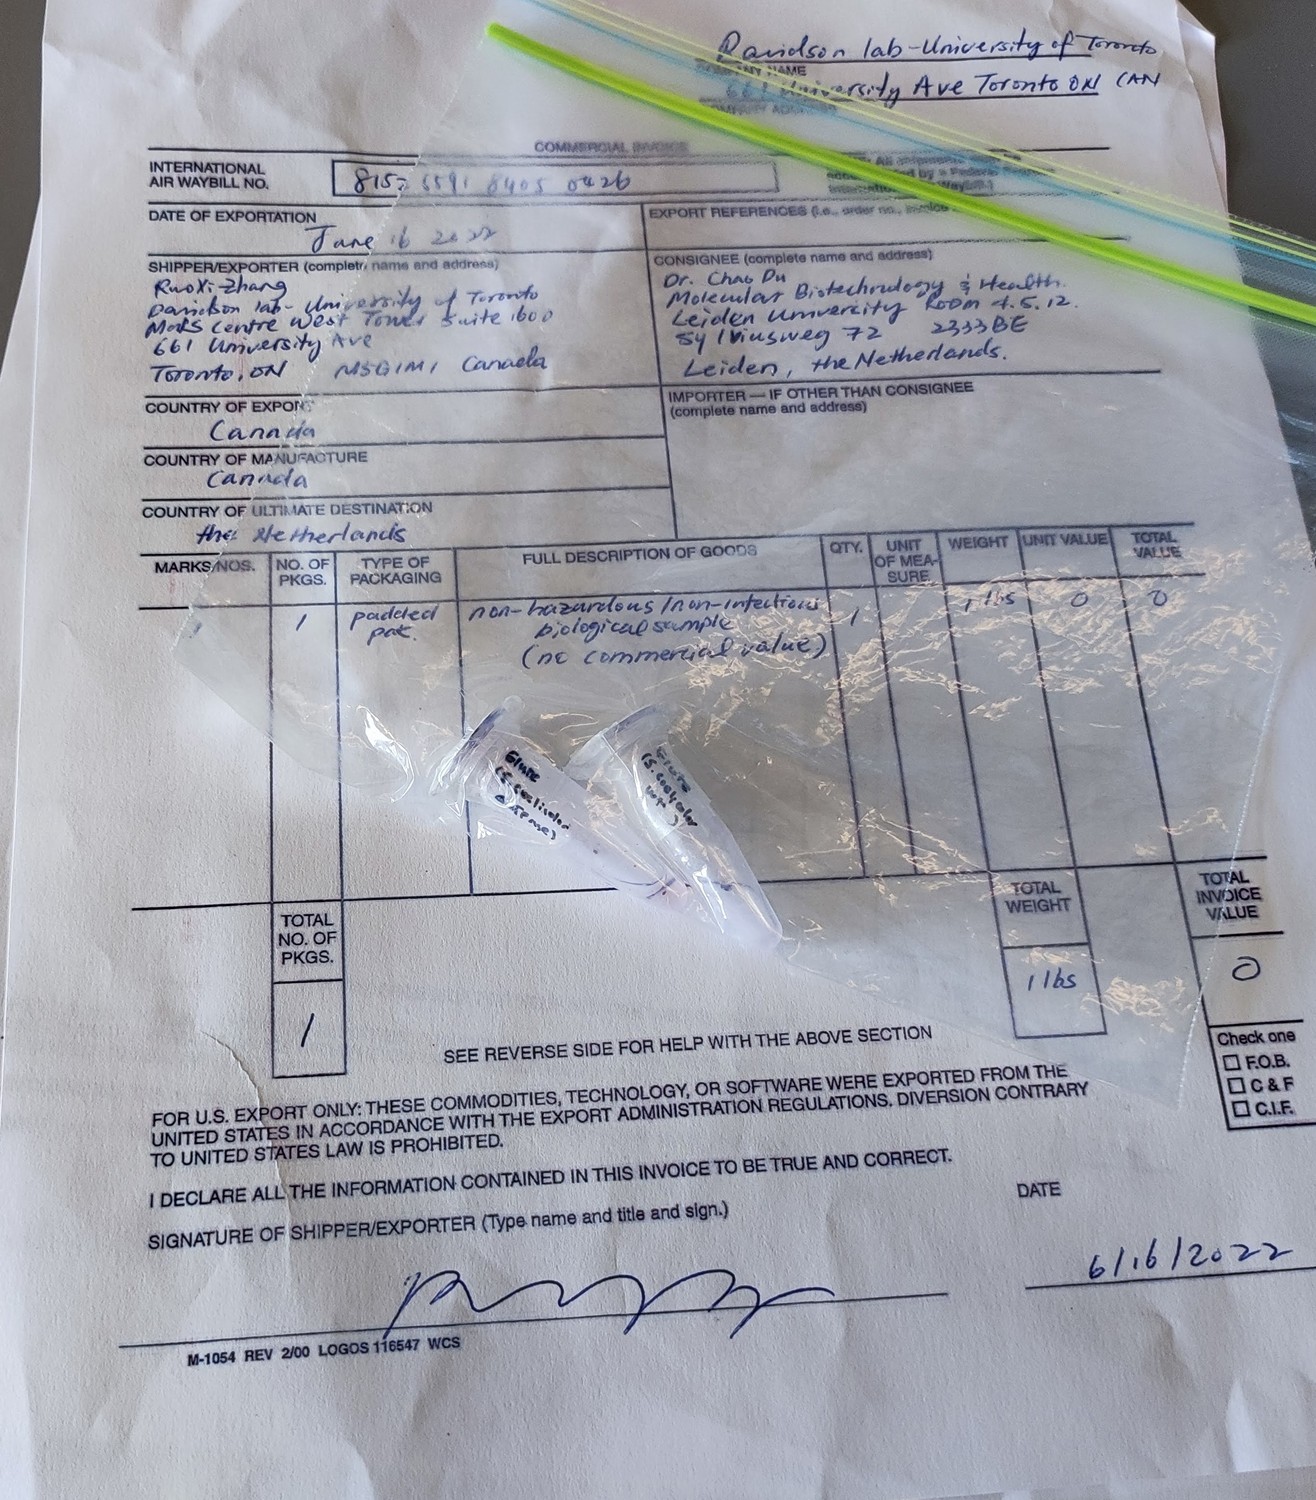 Davidson lab-University of Toronto
COMPANY NAME
661 University Ave Toronto ON CAN
COMPANY ADDRESS
COMMERCIAL INVOICE
INTERNATIONAL
AIR WAYBILL NO.
8405 0426
DATE OF EXPORTATION
June 16 2022
EXPORT REFERENCES (i.e., order no., invoice
SHIPPER/EXPORTER (complete name and address)
RuoXi Zhang
Davidson lab- University of Toronto
MaRS Centre West Tower Suite 1600
661 University Ave
Toronto, ON M5G1M1 Canada
CONSIGNEE (complete name and address)
Dr. Chao Du
Molecular Biotechnology & Health.
Leiden University Room 4.5.12.
Sylviusweg 72 2333BE
Leiden, the Netherlands.
COUNTRY OF EXPORT
Canada
IMPORTER — IF OTHER THAN CONSIGNEE
(complete name and address)
COUNTRY OF MANUFACTURE
Canada
COUNTRY OF ULTIMATE DESTINATION
the Netherlands
MARKS/NOS.
NO. OF
PKGS.
TYPE OF
PACKAGING
FULL DESCRIPTION OF GOODS
QTY.
UNIT
OF MEA-
SURE
WEIGHT
UNIT VALUE
TOTAL
VALUE
1
padded
pak.
non-hazardous/non-infectious
biological sample
(no commercial value)
1
1 lbs
0
0
(S. coelicolor
(S. coelicolor
TOTAL
NO. OF
PKGS.
1
TOTAL
WEIGHT
1 lbs
TOTAL
INVOICE
VALUE
0
SEE REVERSE SIDE FOR HELP WITH THE ABOVE SECTION
Check one
F.O.B.
C & F
C.I.F.
FOR U.S. EXPORT ONLY: THESE COMMODITIES, TECHNOLOGY, OR SOFTWARE WERE EXPORTED FROM THE
UNITED STATES IN ACCORDANCE WITH THE EXPORT ADMINISTRATION REGULATIONS. DIVERSION CONTRARY
TO UNITED STATES LAW IS PROHIBITED.
I DECLARE ALL THE INFORMATION CONTAINED IN THIS INVOICE TO BE TRUE AND CORRECT.
SIGNATURE OF SHIPPER/EXPORTER (Type name and title and sign.)
DATE
6/16/2022
M-1054 REV 2/00 LOGOS 116547 WCS